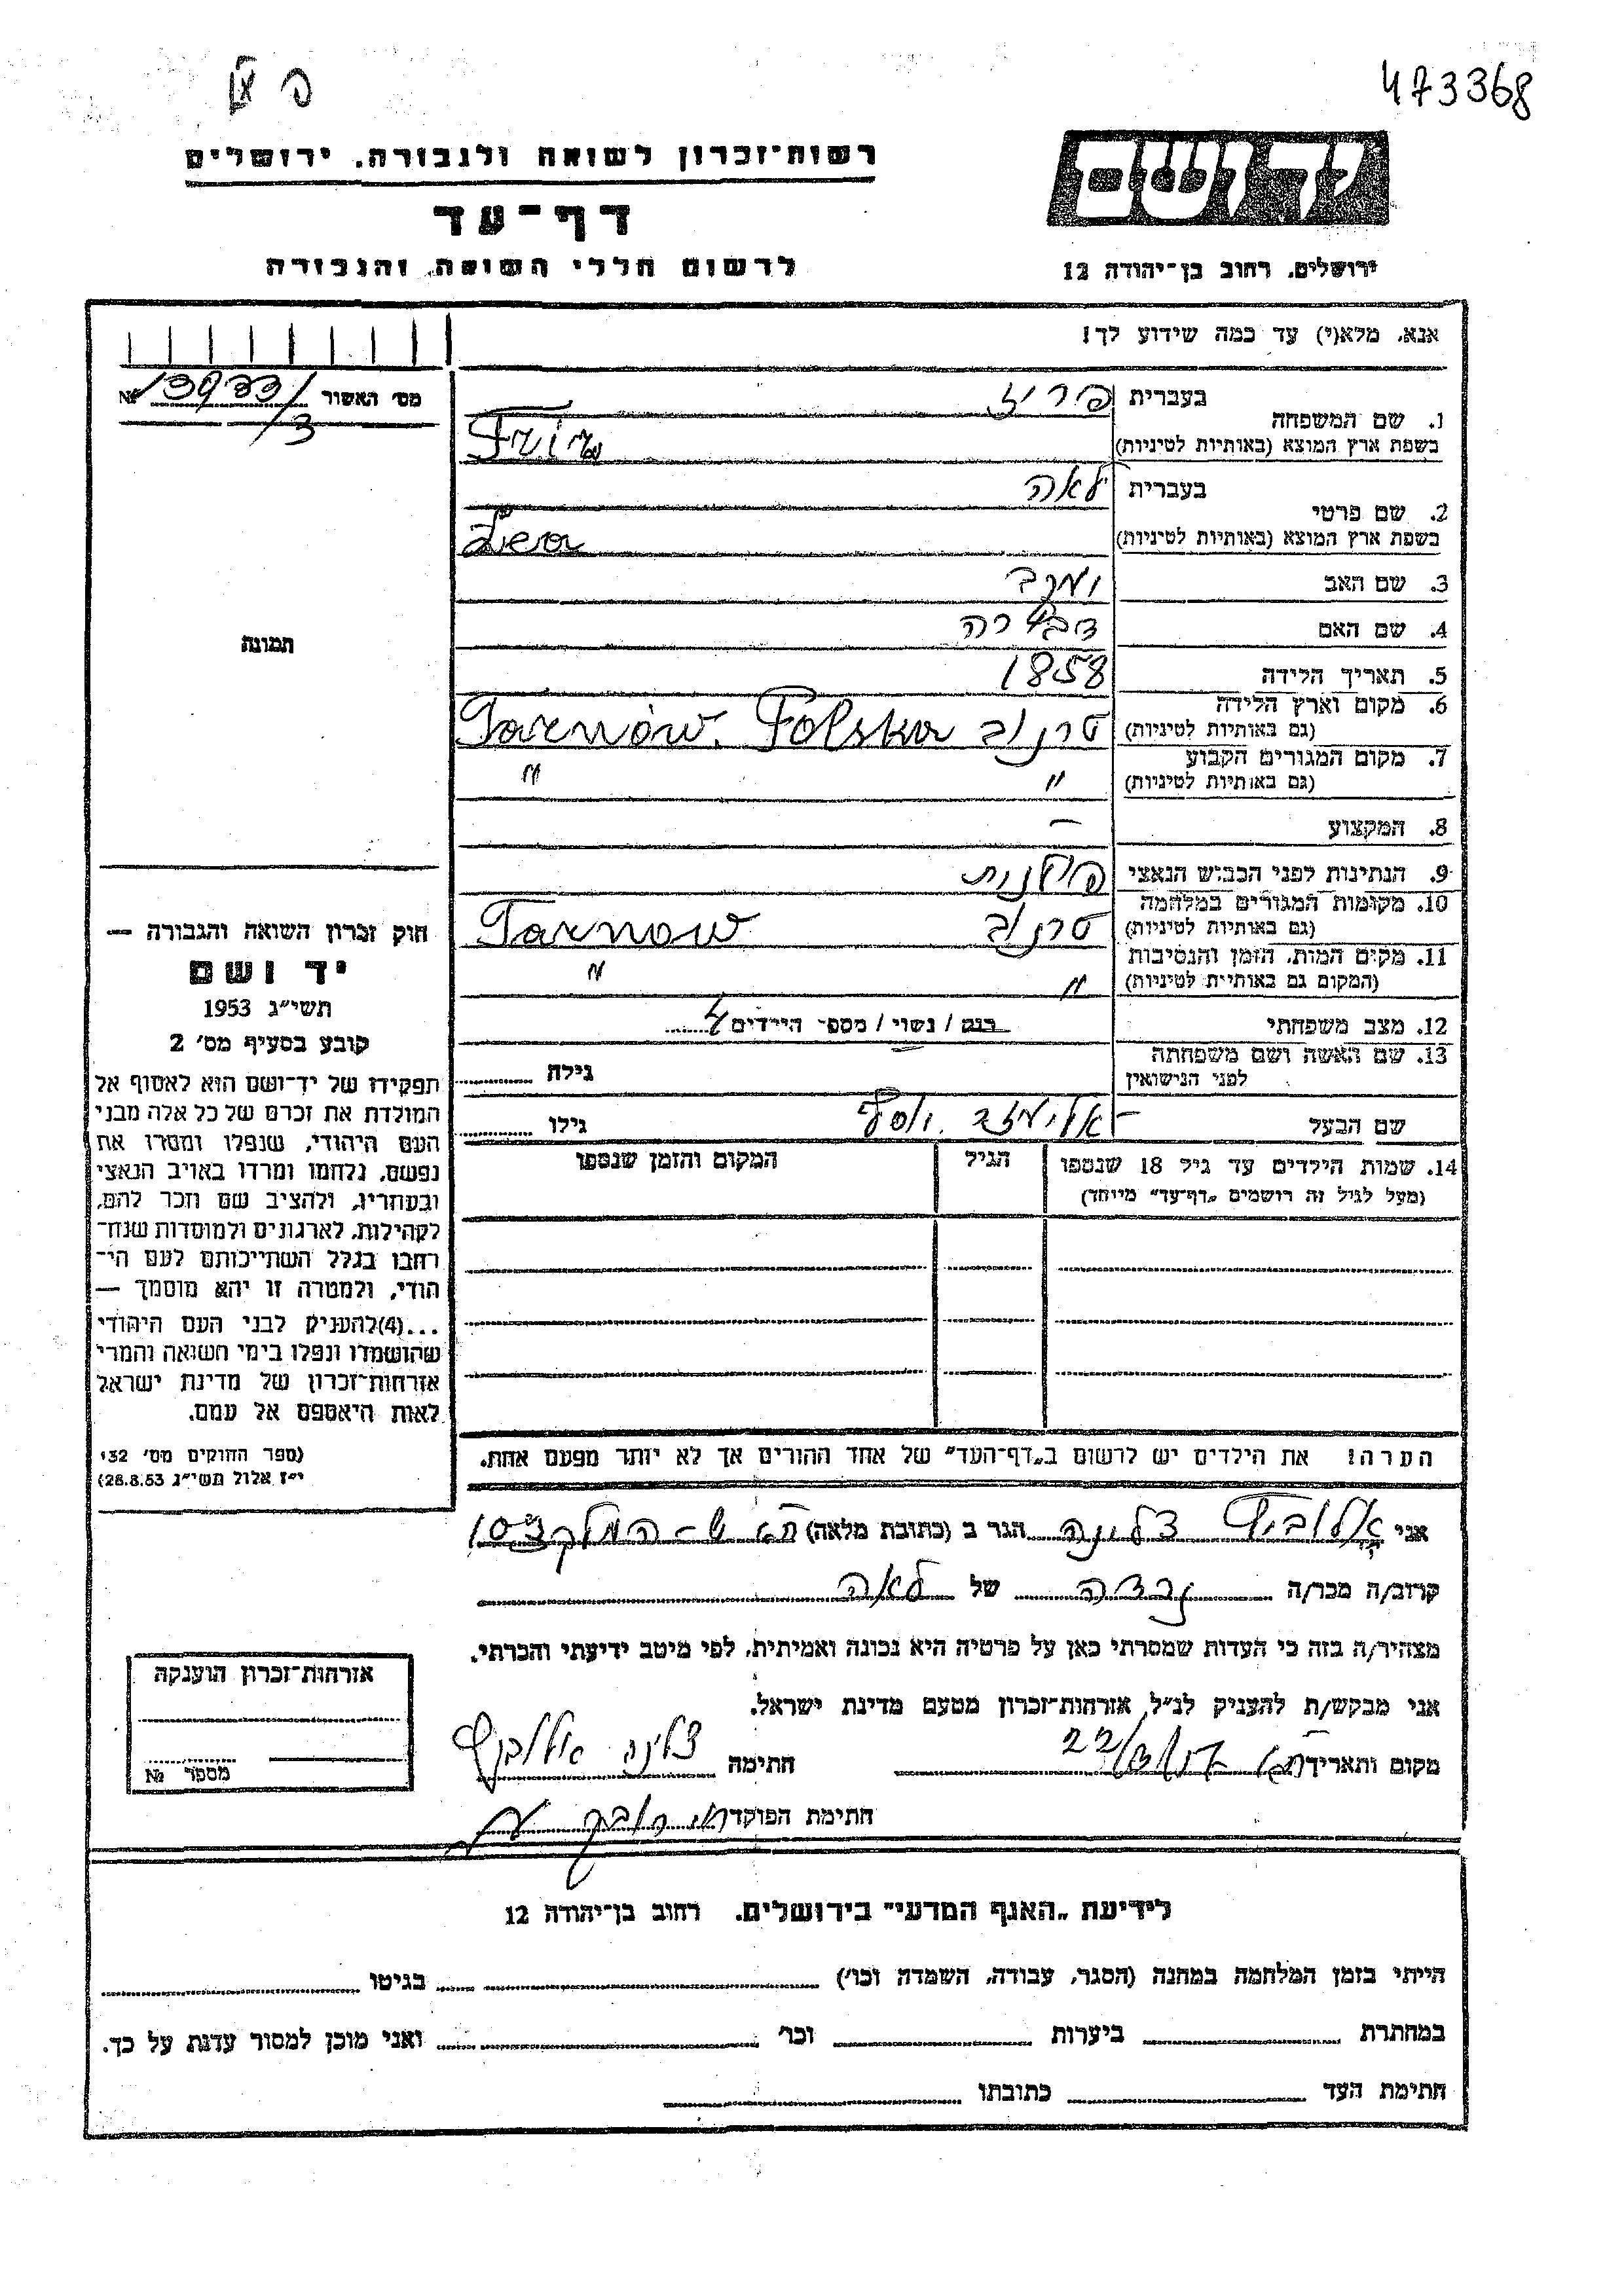 473368
רשות־זכרון לשואה ולגבורה, ירושלים
יד ושם
דף־עד
לרשום חללי השואה והגבורה
ירושלים, רחוב בן־יהודה 12
אנא, מלא(י) עד כמה שידוע לך!
מס׳ האשור № 13933/3
1. שם המשפחה
בעברית פריז
בשפת ארץ המוצא (באותיות לטיניות) Friz
2. שם פרטי
בעברית לאה
בשפת ארץ המוצא (באותיות לטיניות) Lea
3. שם האב
4. שם האם דבורה
5. תאריך הלידה 1858
6. מקום וארץ הלידה (גם באותיות לטיניות) טרנוב Tarnów. Polska
7. מקום המגורים הקבוע (גם באותיות לטיניות) " "
8. המקצוע –
9. הנתינות לפני הכבוש הנאצי פולנית
10. מקומות המגורים במלחמה (גם באותיות לטיניות) טרנוב Tarnow
11. מקום המות, הזמן והנסיבות (המקום גם באותיות לטיניות) " "
12. מצב משפחתי רווק / נשוי / מספר הילדים 4
13. שם האשה ושם משפחתה לפני הנישואין – גילה
שם הבעל גילו
14. שמות הילדים עד גיל 18 שנספו (מעל לגיל זה רושמים „דף־עד״ מיוחד)
הגיל
המקום והזמן שנספו
הערה! את הילדים יש לרשום ב„דף־העד״ של אחד ההורים אך לא יותר מפעם אחת.
תמונה
חוק זכרון השואה והגבורה —
יד ושם
תשי״ג 1953
קובע בסעיף מס׳ 2
תפקידו של יד־ושם הוא לאסוף אל
המולדת את זכרם של כל אלה מבני
העם היהודי, שנפלו ומסרו את
נפשם, נלחמו ומרדו באויב הנאצי
ובעוזריו, ולהציב שם וזכר להם,
לקהילות, לארגונים ולמוסדות שנח־
רבו בגלל השתייכותם לעם הי־
הודי, ולמטרה זו יהא מוסמך —
...(4) להעניק לבני העם היהודי
שהושמדו ונפלו בימי השואה והמרי
אזרחות־זכרון של מדינת ישראל
לאות היאספם אל עמם.
(ספר החוקים מס׳ 132
י״ז אלול תשי״ג 28.8.53)
אני צלינה הגר ב (כתובת מלאה)
קרוב/ה מכר/ה נכדה של לאה
מצהיר/ה בזה כי העדות שמסרתי כאן על פרטיה היא נכונה ואמיתית, לפי מיטב ידיעתי והכרתי.
אני מבקש/ת להעניק לנ״ל, אזרחות־זכרון מטעם מדינת ישראל.
מקום ותאריך חתימה צלינה
חתימת הפוקד
אזרחות־זכרון הוענקה
מספר №
לידיעת „האגף המדעי״ בירושלים, רחוב בן־יהודה 12
הייתי בזמן המלחמה במחנה (הסגר, עבודה, השמדה וכו׳) בגיטו
במחתרת ביערות וכו׳ ואני מוכן למסור עדות על כך.
חתימת העד כתובתו